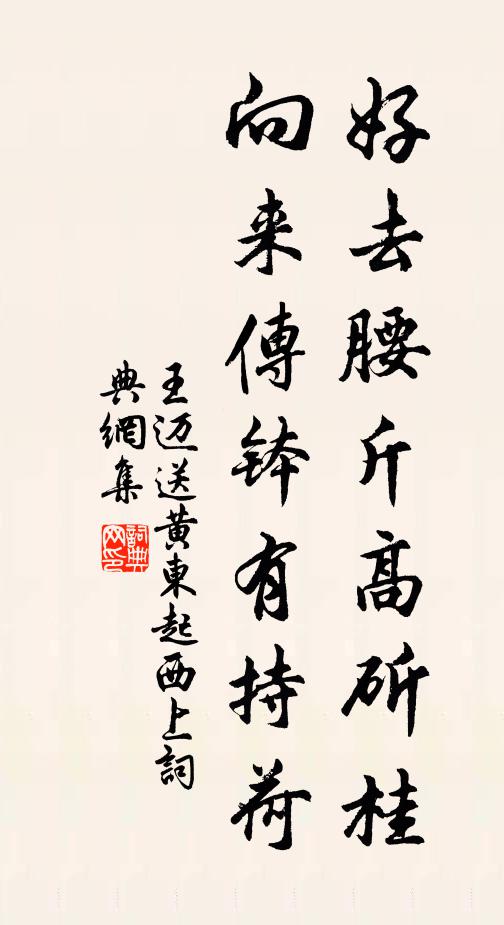 好去腰斤高斫桂
向来傳缽有持荷
王迈送黄東起西上詞
典網集
詞典网印